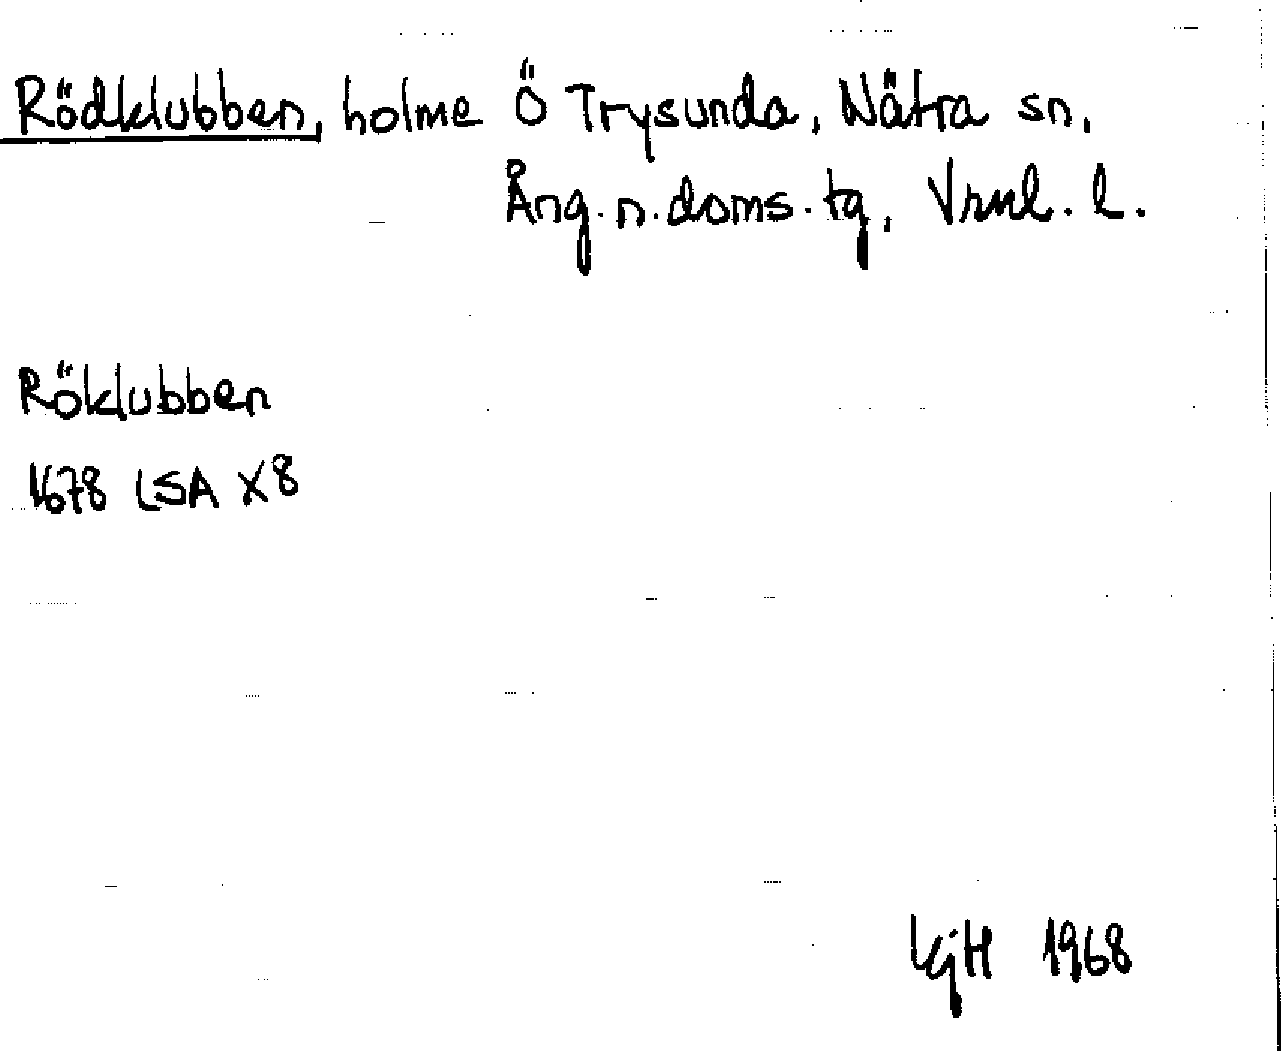 Rödklubben, holme Ö Trysunda, Nätra sn,
Ång. n. doms. tg, Vrnl. l.
Röklubben
1678 LSA X8
KjH 1968